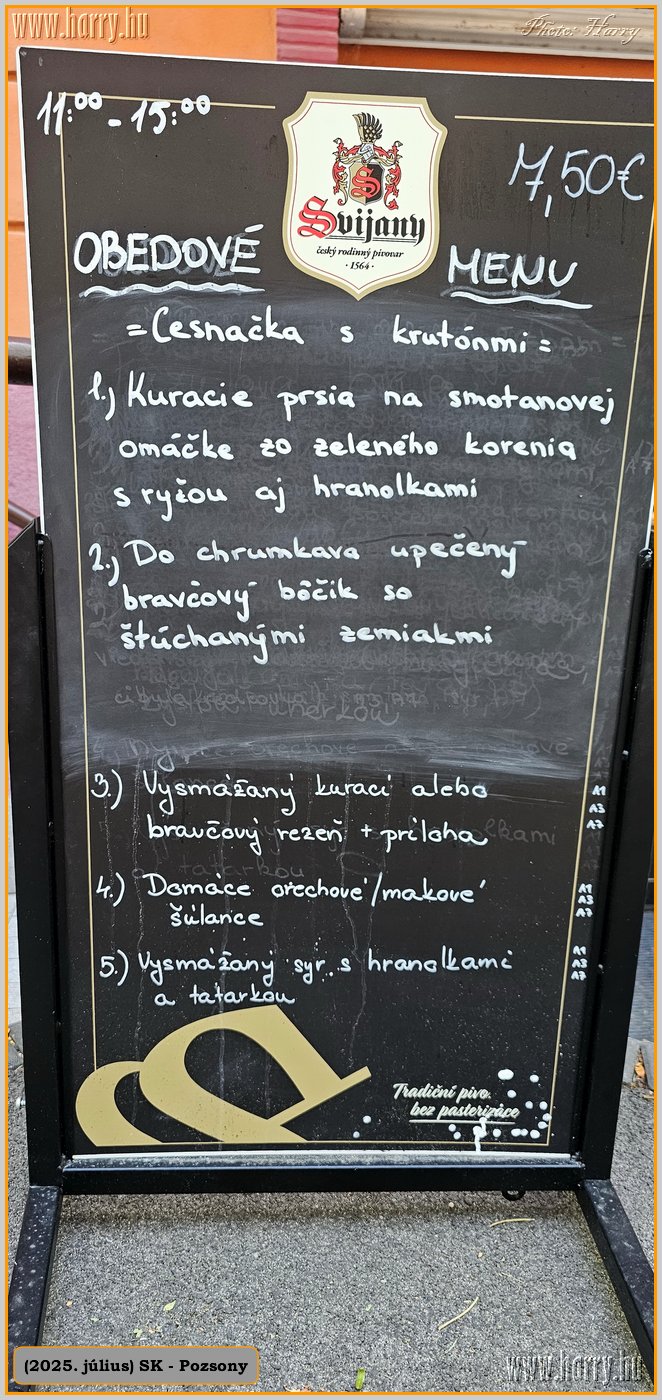 www.harry.hu
Photo: Harry
11:00 - 15:00
7,50€
S
Svijany
český rodinný pivovar
· 1564 ·
OBEDOVÉ MENU
= Cesnačka s krutónmi =
1.) Kuracie prsia na smotanovej
omáčke zo zeleného korenia
s ryžou aj hranolkami
2.) Do chrumkava upečený
bravčový bôčik so
štúchanými zemiakmi
3.) Vysmážaný kurací alebo A1
A3
bravčový rezeň + príloha A7
4.) Domáce orechové/makové A1
A3
šúlance A7
5.) Vysmážaný syr s hranolkami A1
A3
a tatarkou A7
Tradiční pivo.
bez pasterizáce
(2025. július) SK - Pozsony
www.harry.hu